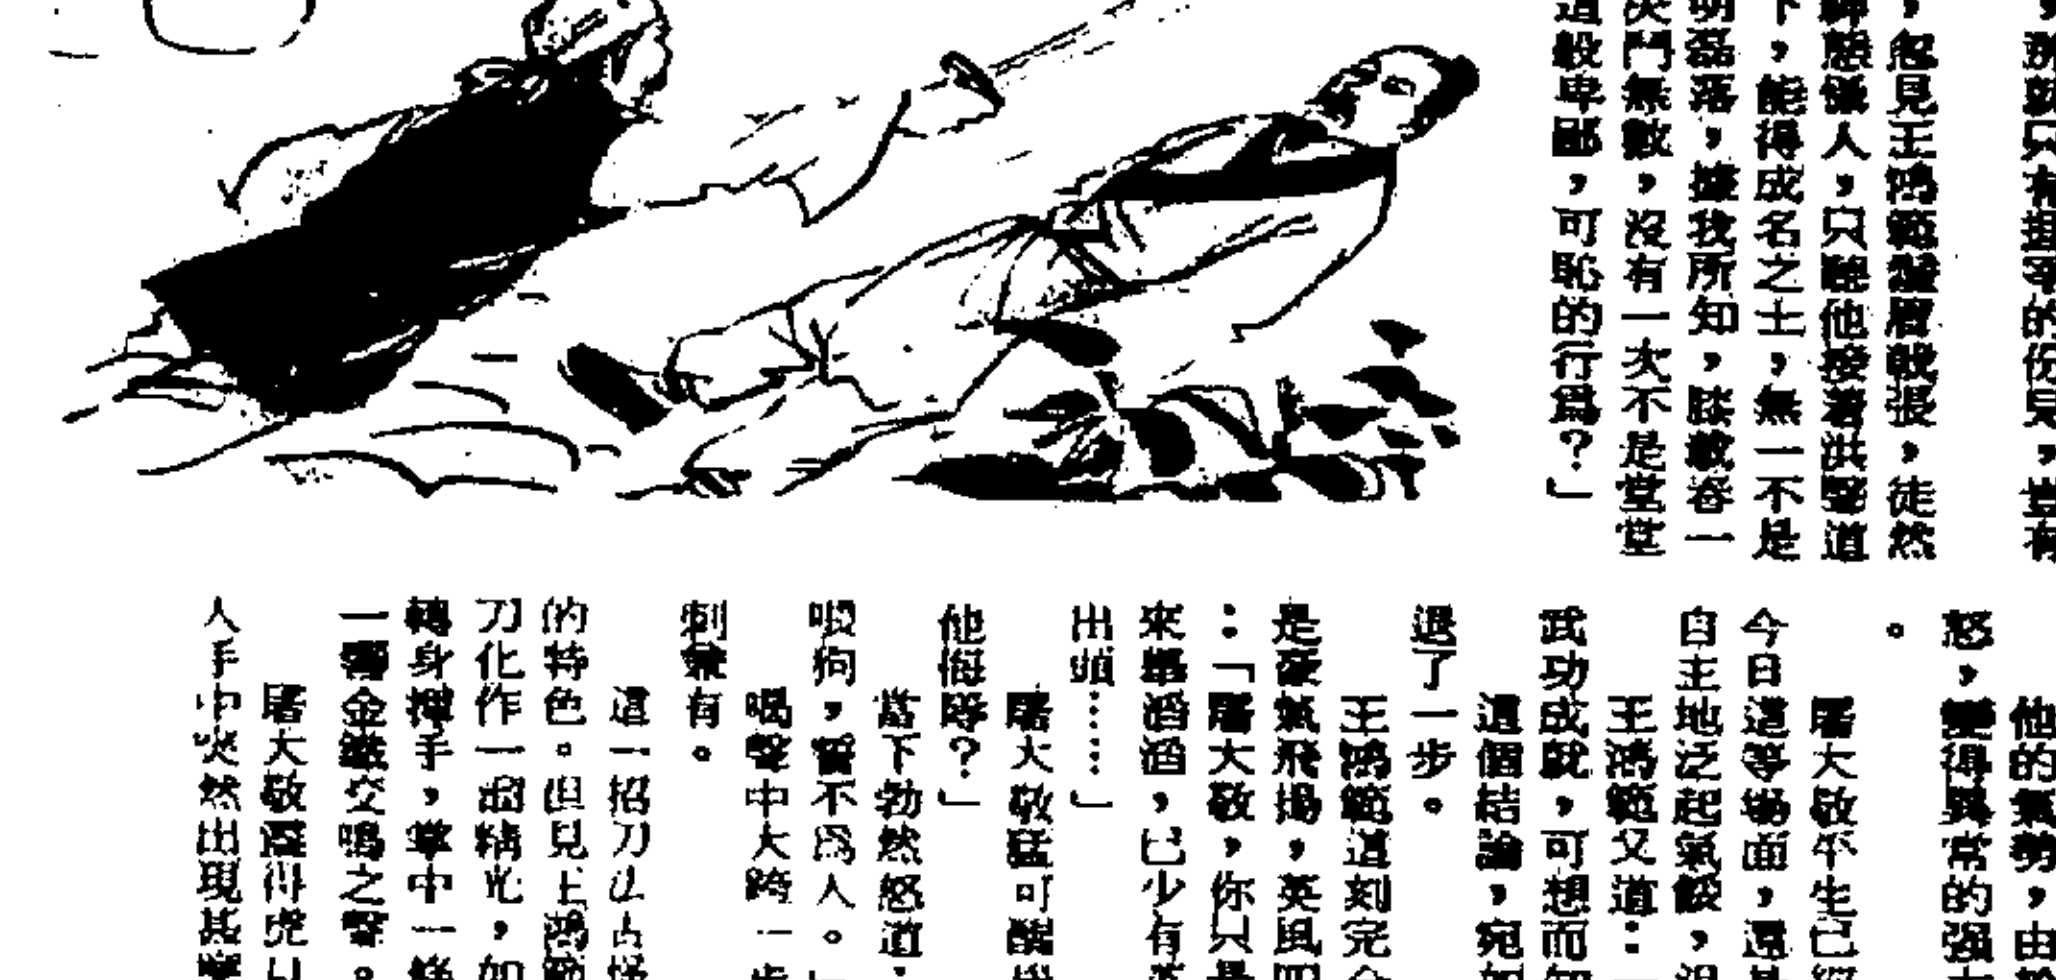 ，所就只有挺等的份兒，豈有
，忽見王鴻範鬚眉戟張，徒然
神態懾人，只聽他接着洪聲道
下，能得成名之士，無一不是
明磊落，據我所知，滕敬春一
決鬥無數，沒有一次不是堂堂
這般卑鄙，可恥的行爲？」
他的氣勢，由
怒，變得異常的强
。
屠大敬平生已經
今日這等場面，還是
自主地泛起氣餒，沒
王鴻範又道：
武功成就，可想而知
這個結論，宛如
退了一步。
王鴻範這刻完全
是豪氣飛揚，英風
：「屠大敬，你只是
來濤滔滔，已少有英
出頭……」
屠大敬猛可醒
他侮辱？」
當下勃然怒道：
喂狗，誓不爲人。」
喝聲中大跨一步
刺兼有。
這一招刀法占
的特色。但見王鴻範
刀化作一溜精光，如
轉身揮手，掌中一條
一響金鐵交鳴之聲。
屠大敬震得虎口
人手中突然出現甚麼